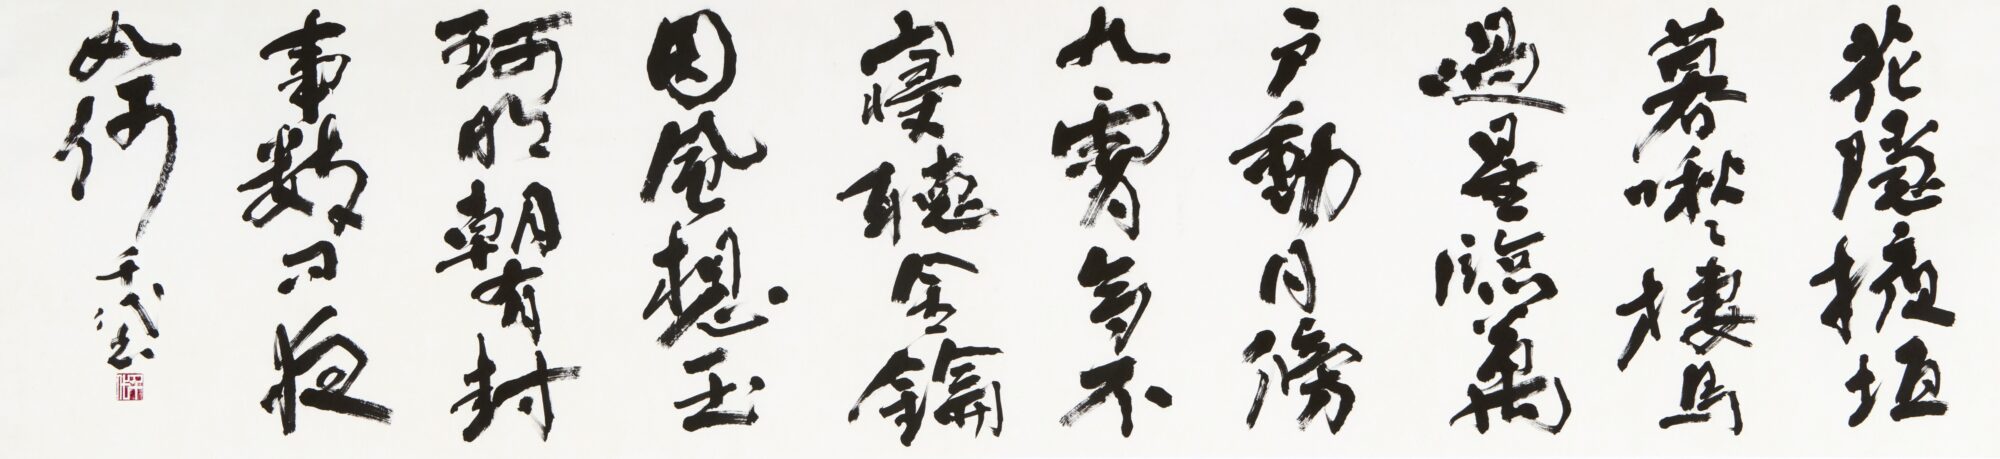 花隱掖垣
暮啾々棲鳥
過星臨萬
戶動月傍
九霄多不
寢聽金鑰
因風想玉
珂明朝有封
事數問夜
如何